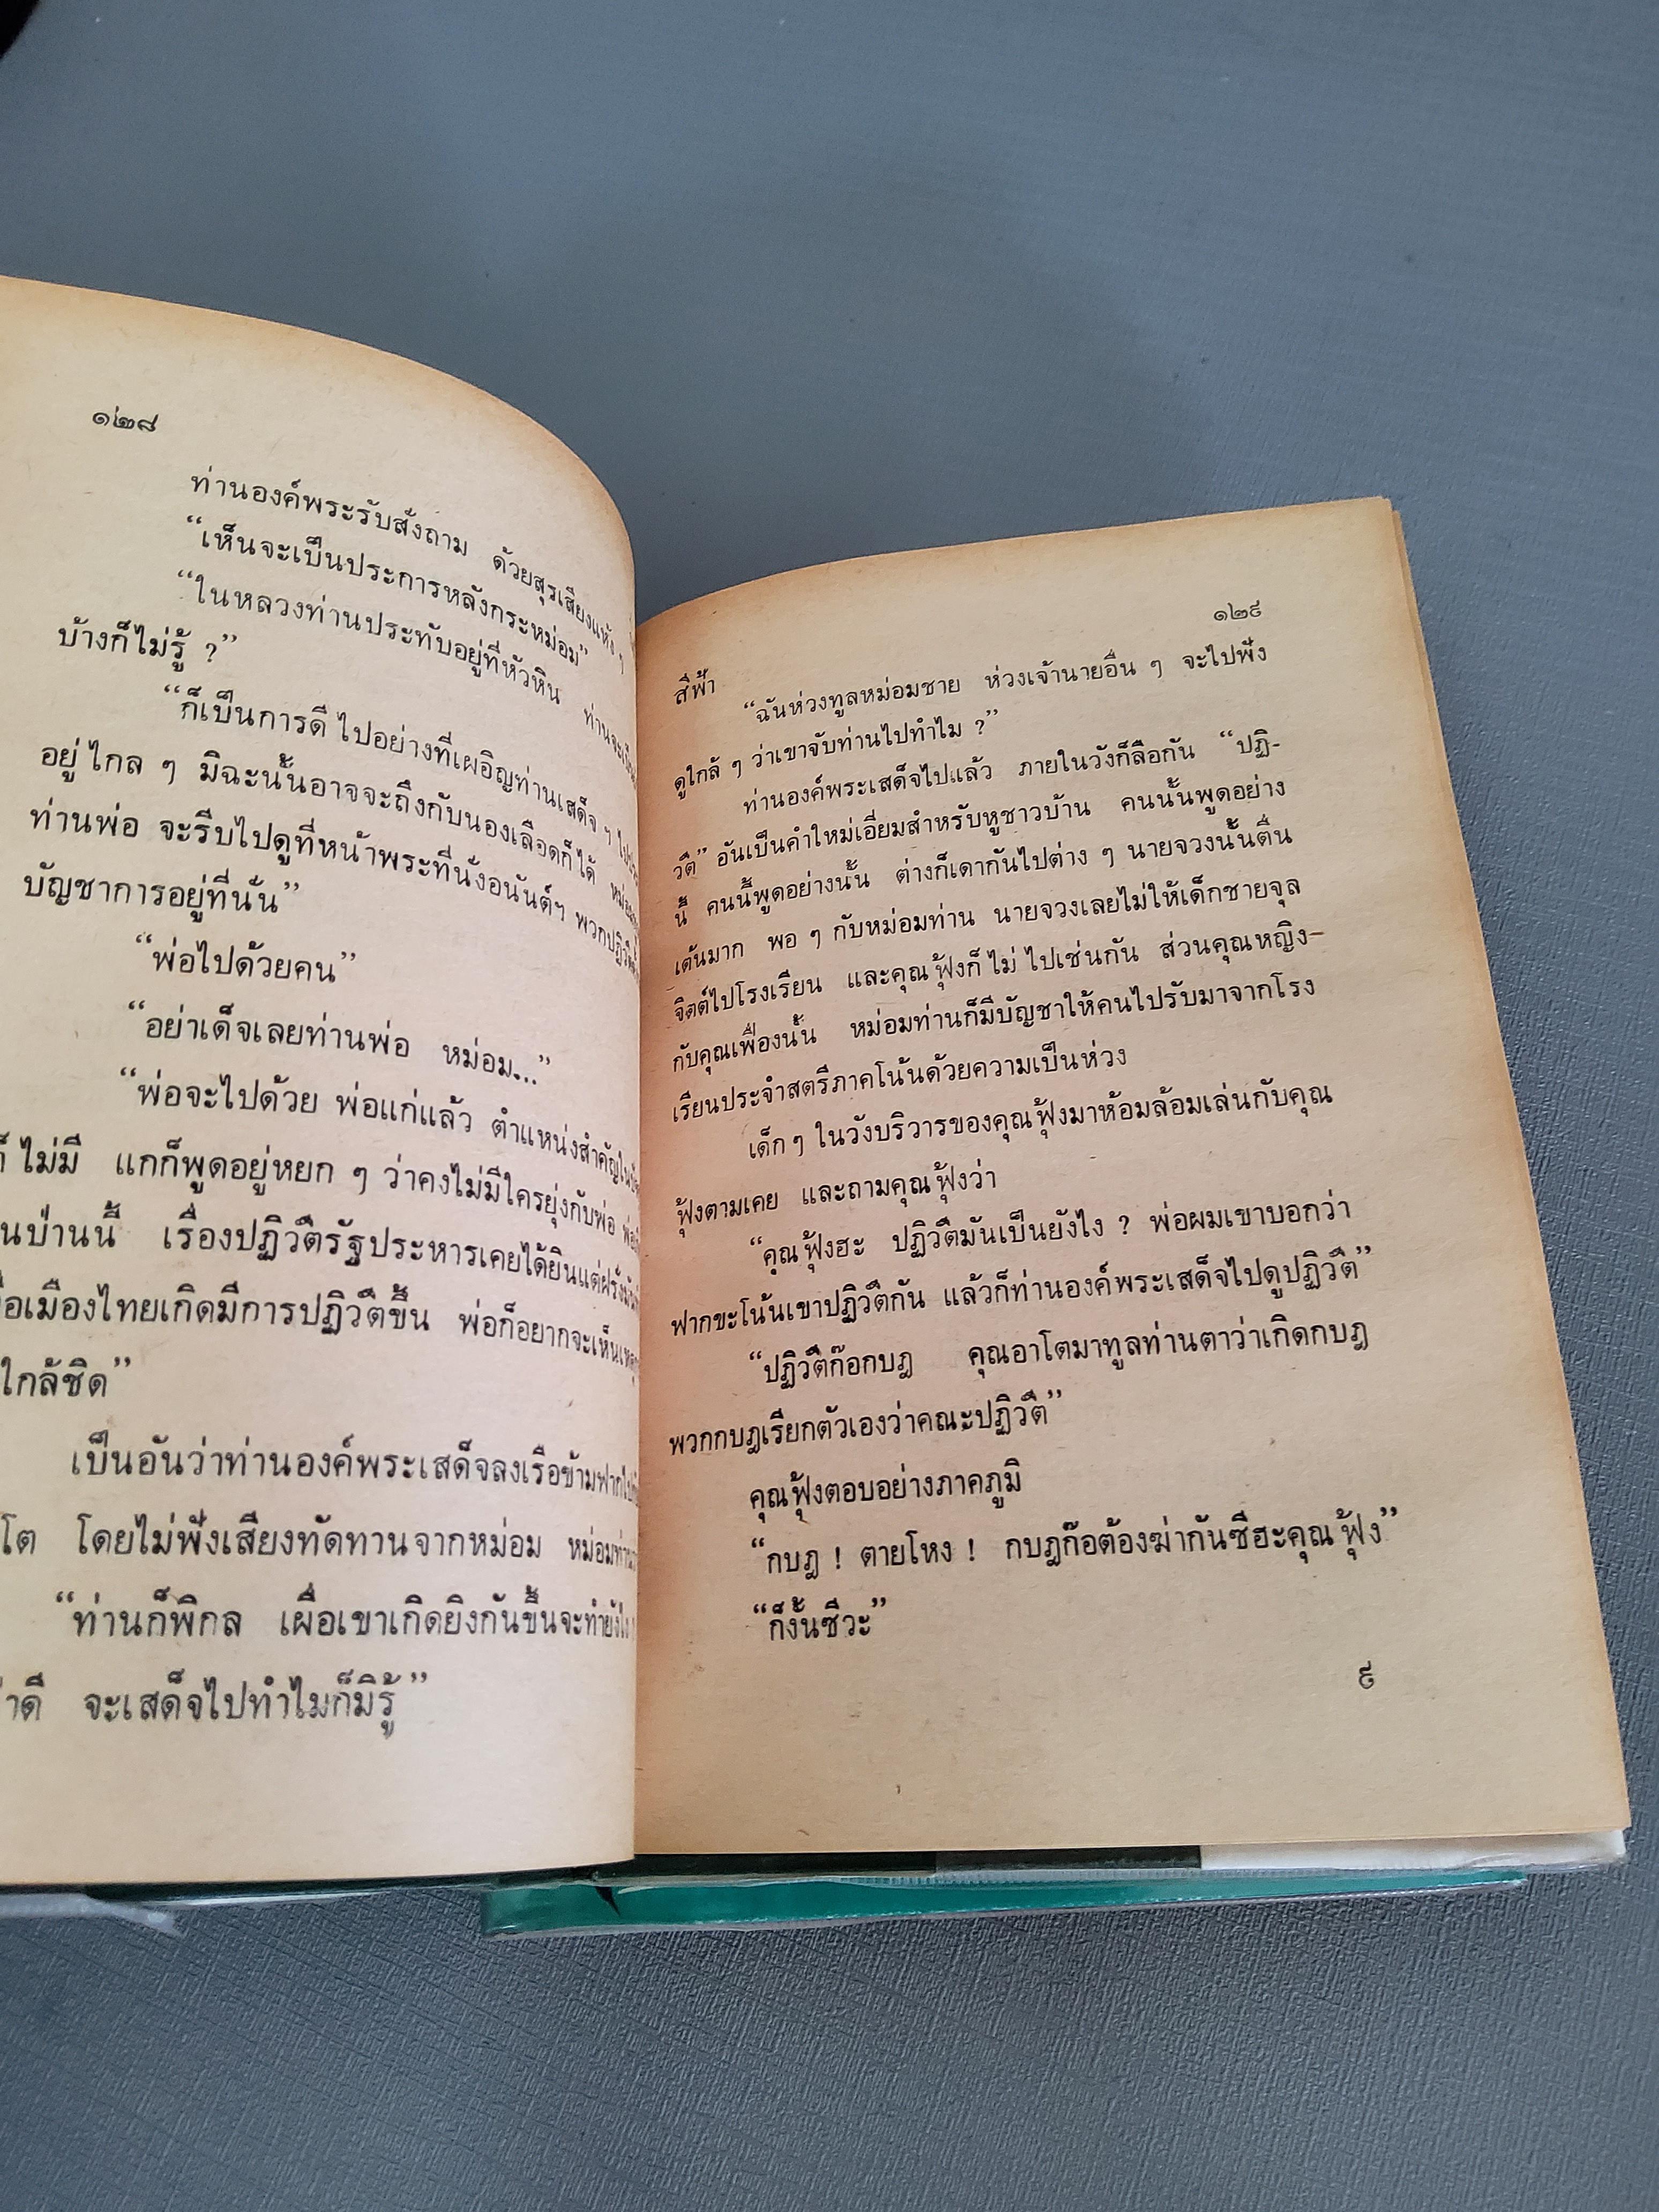 ๑๒๘
ท่านองค์พระรับสั่งถาม ด้วยสุรเสียงแห้ง ๆ
“เห็นจะเป็นประการหลังกระหม่อม”
“ในหลวงท่านประทับอยู่ที่หัวหิน ท่านจะเป็น
บ้างก็ไม่รู้ ?”
“ก็เป็นการดี ไปอย่างที่เผอิญท่านเสด็จ ฯ
อยู่ ไกล ๆ มิฉะนั้นอาจจะถึงกับนองเลือดก็ได้
ท่านพ่อ จะรีบไปดูที่หน้าพระที่นั่งอนันต์ฯ พวกปฏิวัติ
บัญชาการอยู่ที่นั่น”
“พ่อไปด้วยคน”
“อย่าเด็จเลยท่านพ่อ หม่อม...”
“พ่อจะไปด้วย พ่อแก่แล้ว ตำแหน่งสำคัญ
ก็ ไม่มี แกก็พูดอยู่หยก ๆ ว่าคงไม่มีใครยุ่งกับพ่อ
ป่านนี้ เรื่องปฏิวัติรัฐประหารเคยได้ยินแต่ฝรั่ง
เมืองไทยเกิดมีการปฏิวัติขึ้น พ่อก็อยากจะเห็น
ใกล้ชิด”
เป็นอันว่าท่านองค์พระเสด็จลงเรือข้ามฟาก
โต โดยไม่ฟังเสียงทัดทานจากหม่อม หม่อมท่าน
“ท่านก็พิกล เผื่อเขาเกิดยิงกันขึ้นจะทำยังไง
ดี จะเสด็จไปทำไมก็มิรู้”
๑๒๙
สีฟ้า
“ฉันห่วงทูลหม่อมชาย ห่วงเจ้านายอื่น ๆ จะไปฟัง
ดูใกล้ ๆ ว่าเขาจับท่านไปทำไม ?”
ท่านองค์พระเสด็จไปแล้ว ภายในวังก็ลือกัน “ปฏิ-
วัติ” อันเป็นคำใหม่เอี่ยมสำหรับหูชาวบ้าน คนนั้นพูดอย่าง
นี้ คนนี้พูดอย่างนั้น ต่างก็เดากันไปต่าง ๆ นายจวงนั้นตื่น
เต้นมาก พอ ๆ กับหม่อมท่าน นายจวงเลยไม่ให้เด็กชายจุล
จิตต์ไปโรงเรียน และคุณฟุ้งก็ ไม่ ไปเช่นกัน ส่วนคุณหญิง-
กับคุณเฟื่องนั้น หม่อมท่านก็มีบัญชาให้คนไปรับมาจากโรง
เรียนประจำสตรีภาคโน้นด้วยความเป็นห่วง
เด็ก ๆ ในวังบริวารของคุณฟุ้งมาห้อมล้อมเล่นกับคุณ
ฟุ้งตามเคย และถามคุณฟุ้งว่า
“คุณฟุ้งฮะ ปฏิวัติมันเป็นยังไง ? พ่อผมเขาบอกว่า
ฟากขะโน้นเขาปฏิวัติกัน แล้วก็ท่านองค์พระเสด็จไปดูปฏิวัติ”
“ปฏิวัติก๊อกบฏ คุณอาโตมาทูลท่านตาว่าเกิดกบฎ
พวกกบฎเรียกตัวเองว่าคณะปฏิวัติ”
คุณฟุ้งตอบอย่างภาคภูมิ
“กบฎ ! ตายโหง ! กบฎก๊อต้องฆ่ากันซีฮะคุณฟุ้ง”
“ก็งั้นซีวะ”
๙